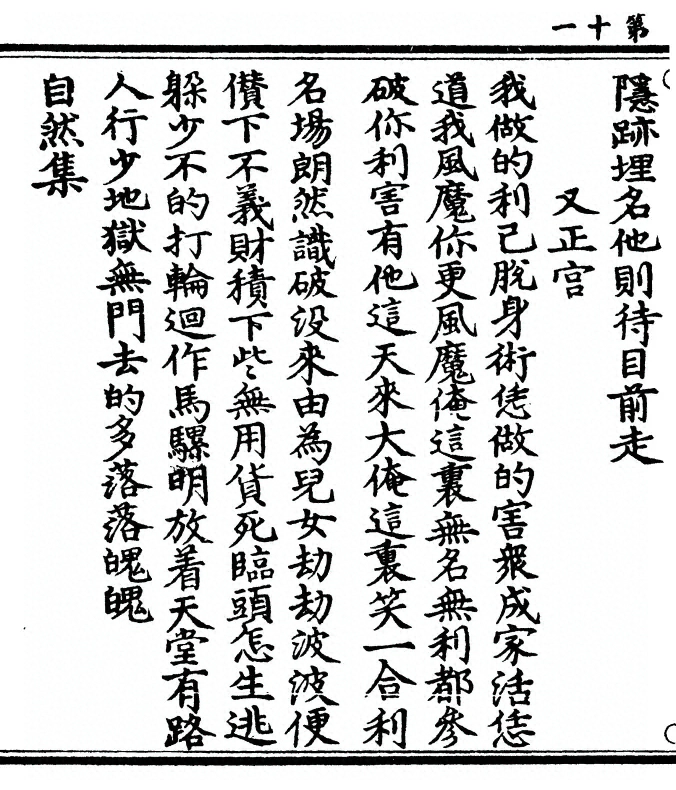 第十一
隱跡埋名他則待目前走
又正宮
我做的利己脫身術恁做的害衆成家活恁
道我風魔你更風魔俺這裏無名無利都參
破你利害有他這天來大俺這裏笑一合利
名場朗然識破没來由為兒女劫劫波波便
儹下不義財積下些無用貨死臨頭怎生逃
躲少不的打輪迴作馬騾明放着天堂有路
人行少地獄無門去的多落落魄魄
自然集